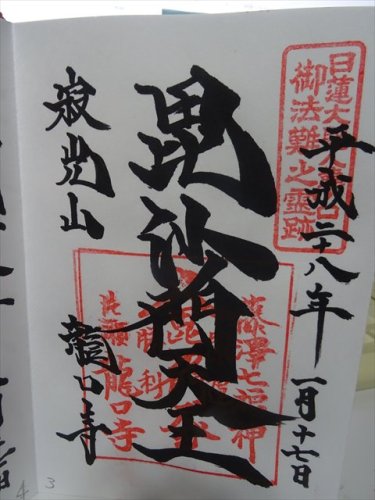 平成二十八年 一月十七日
日蓮大
御法難之霊跡
毘沙門天王
藤澤七福神
寂光山 龍口寺
龍口寺
3
4